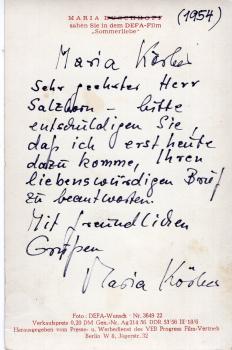 MARIA BUSCHHOFF
(1954)
sahen Sie in dem DEFA-Film
„Sommerliebe"
Maria Körber
Sehr geehrter Herr
Salzborn – bitte
entschuldigen Sie
daß ich erst heute
dazu komme, Ihren
liebenswürdigen Brief
zu beantworten.
Mit freundlichen
Grüßen
Maria Körber
Foto: DEFA-Wunsch · Nr. 3649 22
Verkaufspreis 0,20 DM Gen.-Nr. Ag 214 56 DDR 53 56 III 18/6
Herausgegeben vom Presse- u. Werbedienst des VEB Progress Film-Vertrieb
Berlin W 8, Jägerstr. 32